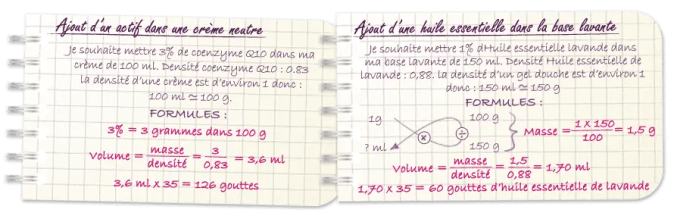 Ajout d'un actif dans une crème neutre
Je souhaite mettre 3% de coenzyme Q10 dans ma
crème de 100 ml. Densité coenzyme Q10 : 0.83
la densité d'une crème est d'environ 1 donc :
100 ml ≃ 100 g.
FORMULES :
3% = 3 grammes dans 100 g
Volume = masse / densité = 3 / 0,83 = 3,6 ml
3,6 ml x 35 = 126 gouttes
Ajout d'une huile essentielle dans la base lavante
Je souhaite mettre 1% d'Huile essentielle lavande dans
ma base lavante de 150 ml. Densité Huile essentielle de
lavande : 0,88. la densité d'un gel douche est d'environ 1
donc : 150 ml ≃ 150 g
FORMULES :
1g 100 g
x ÷
? ml 150 g
Masse = 1 x 150 / 100 = 1,5 g
Volume = masse / densité = 1,5 / 0,88 = 1,70 ml
1,70 x 35 = 60 gouttes d'huile essentielle de lavande